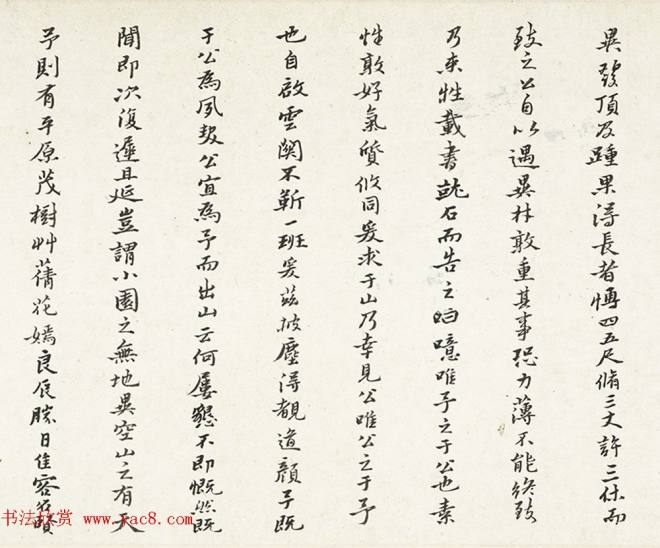 異發頂及踵果得長者博四五尺脩三丈許三休而
致之公自以遇異林敦重其事恐力薄不能終致
乃束牲載書就石而告之曰噫唯予之于公也素
性敢好氣質攸同爰求于山乃幸見公唯公之于予
也自啟雲關不靳一班爰茲披塵得覩道顏予既
于公為夙契公宜為予而出山云何屢懇不即慨然既
聞即次復遲且延豈謂小園之無地異空山之有天
予則有平原茂樹艸蒨花嫣良辰勝日佳客名賢
书法欣赏 www.yac8.com